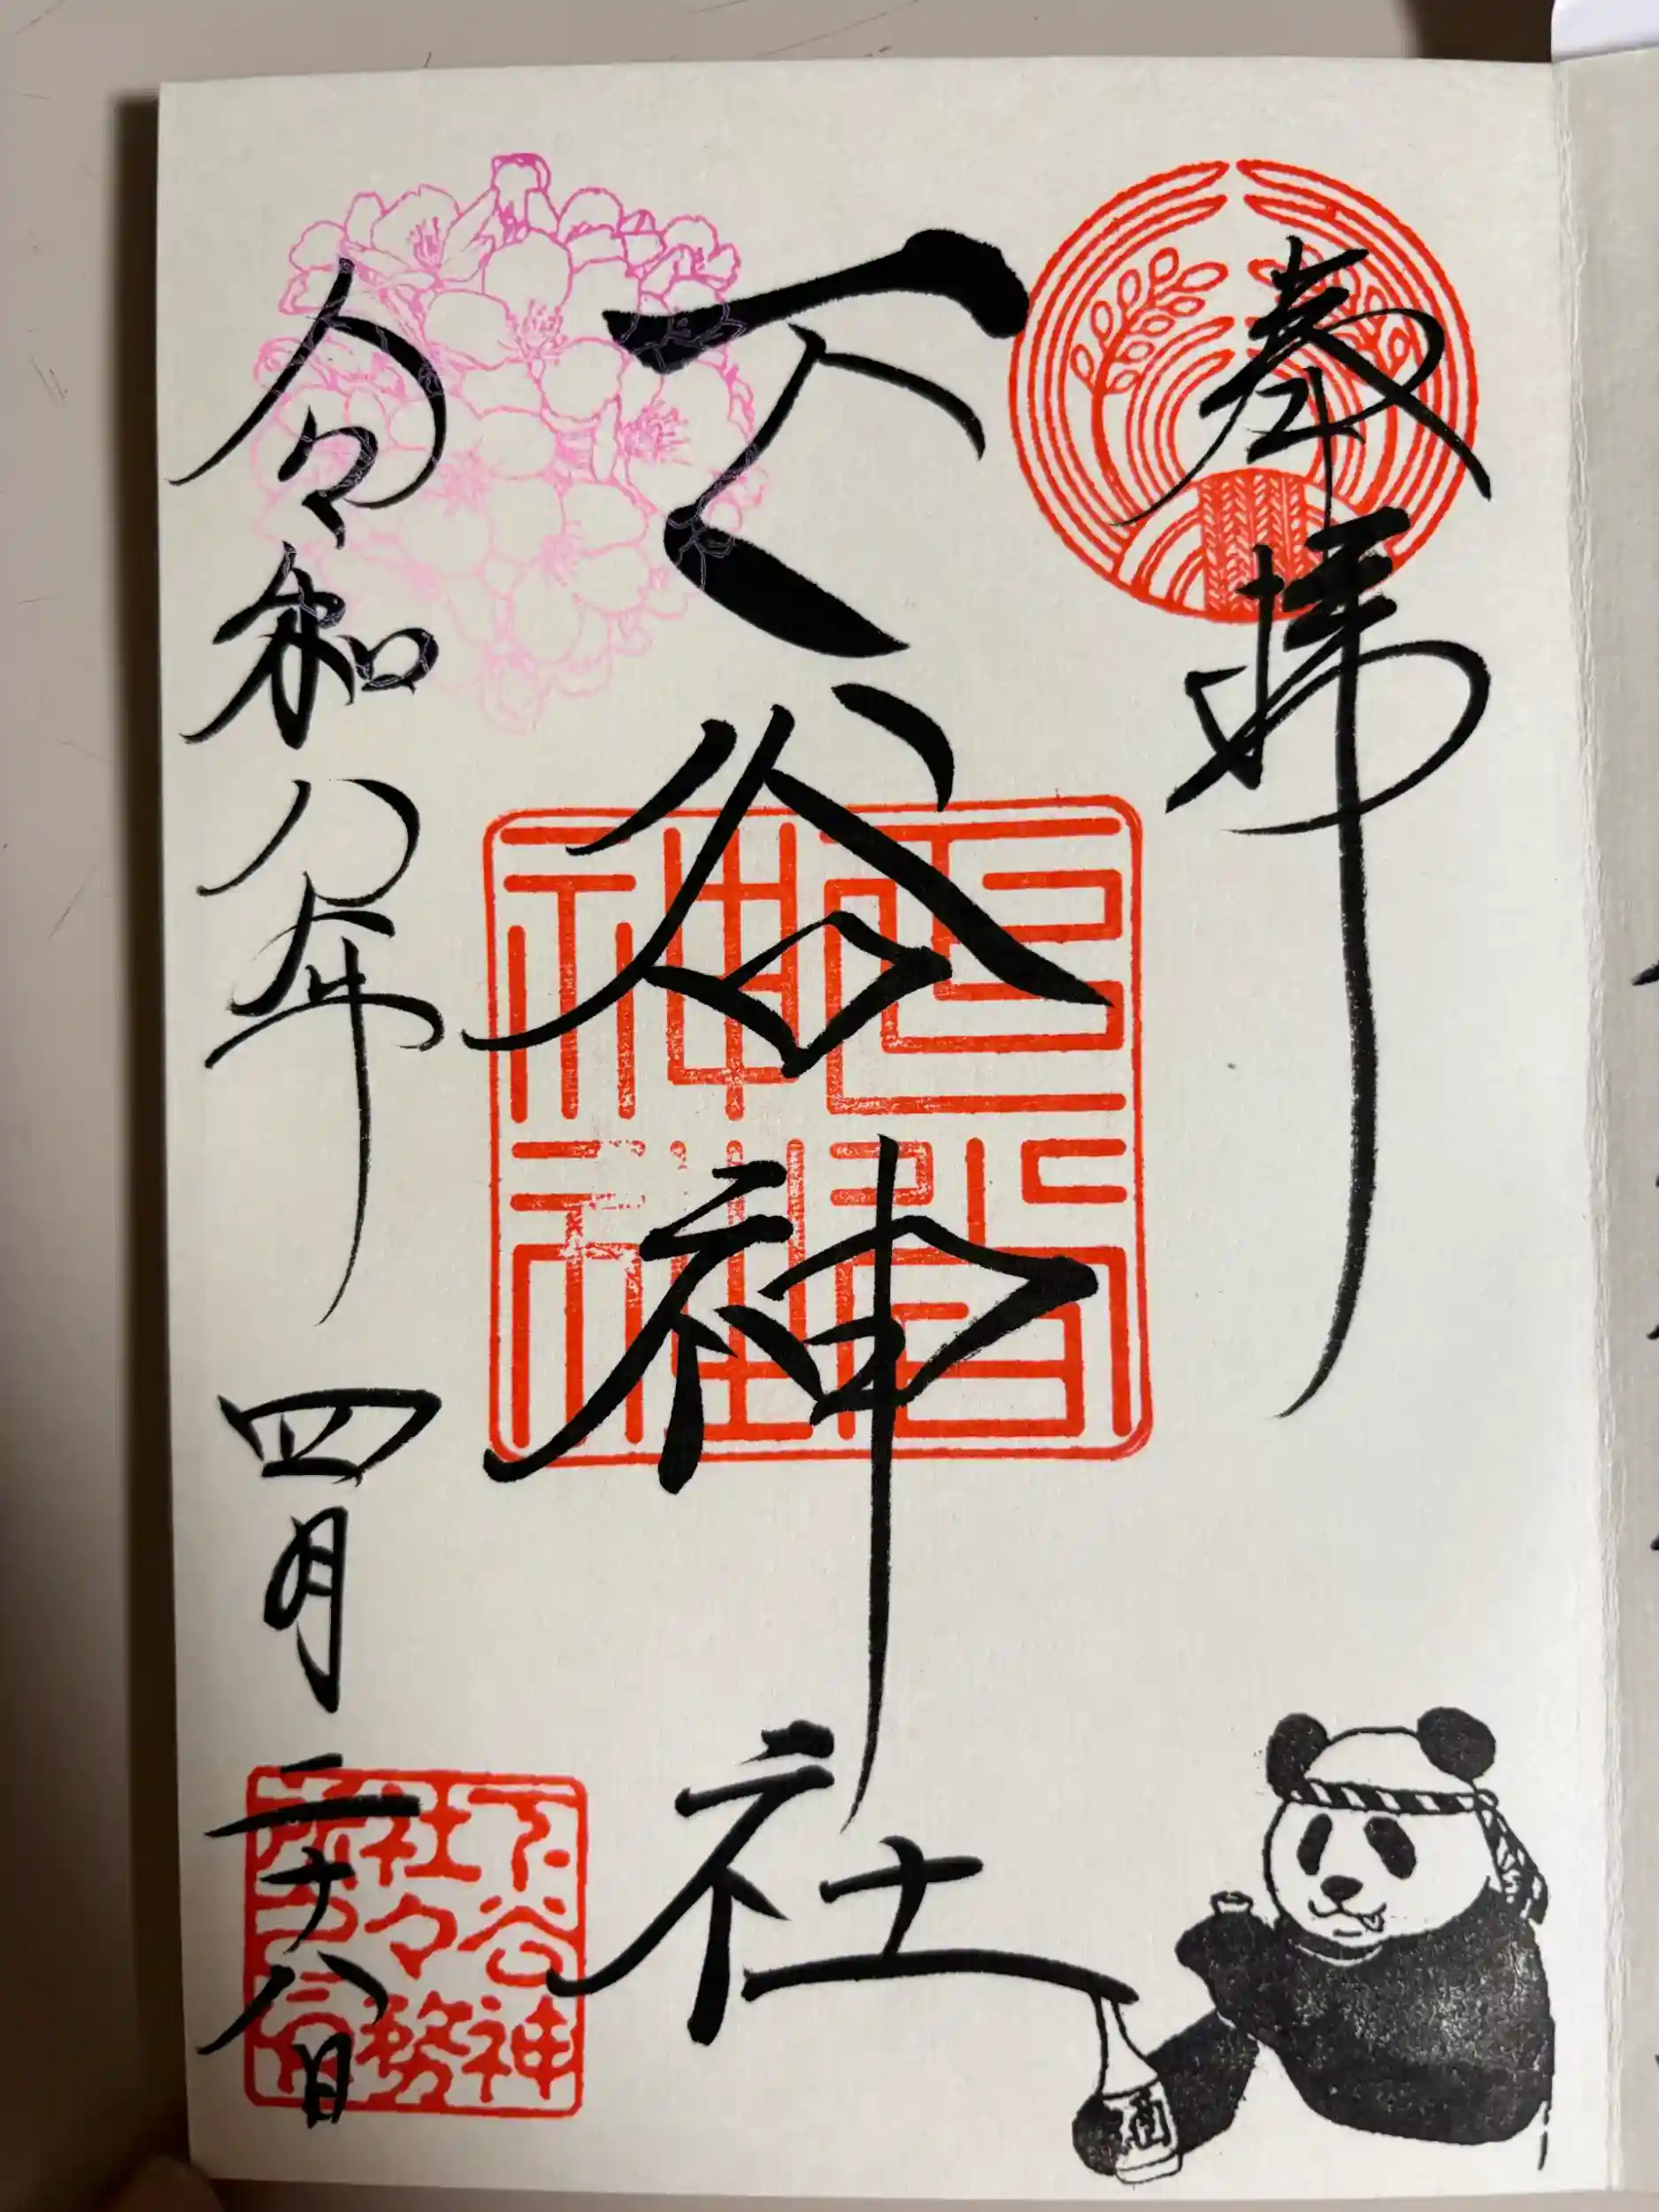 奉拝
下谷神社
令和八年 四月二十八日
下谷神
社々務
所之印
下谷神社
酒